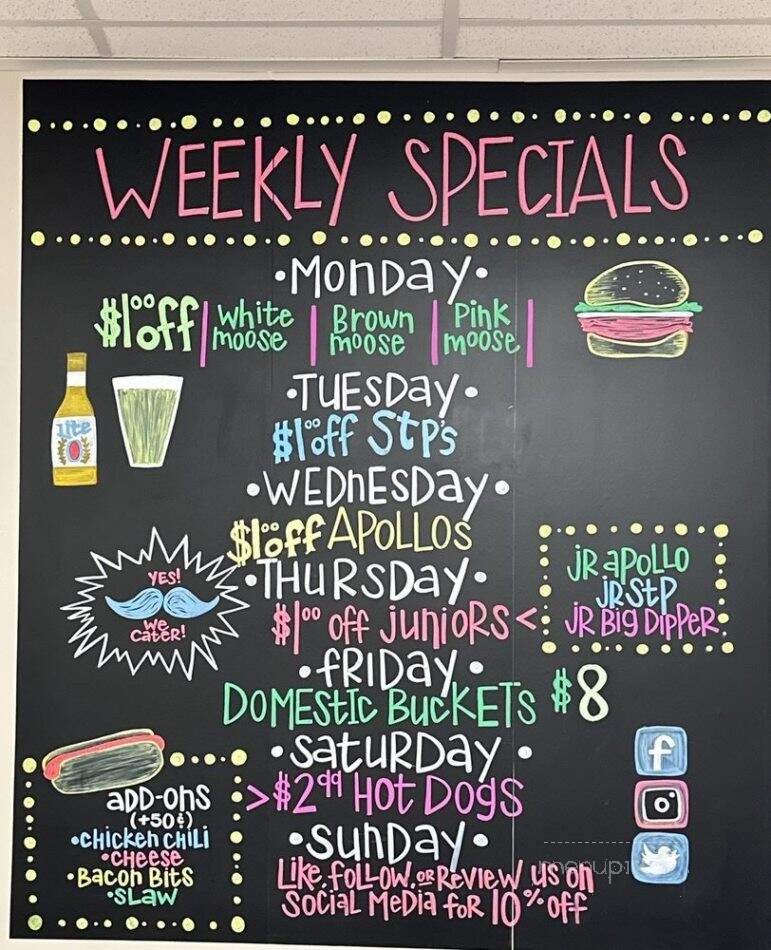 WEEKLY SPECIALS
•MONDAY•
$1⁰⁰ off | White moose | Brown moose | Pink moose |
•TUESDAY•
$1⁰⁰ off STP's
Lite
•WEDNESDAY•
$1⁰⁰ off APOLLOS
•THURSDAY•
$1⁰⁰ off JUNIORS <
JR APOLLO
JR STP
JR BIG DIPPER
YES!
WE
CATER!
•FRIDAY•
DOMESTIC BUCKETS $8
•SATURDAY•
>$2⁹⁹ HOT DOGS
ADD-ONS
(+50¢)
•CHICKEN CHILI
•CHEESE
•BACON BITS
•SLAW
•SUNDAY•
LIKE, FOLLOW, OR REVIEW US ON
SOCIAL MEDIA FOR 10% OFF
f